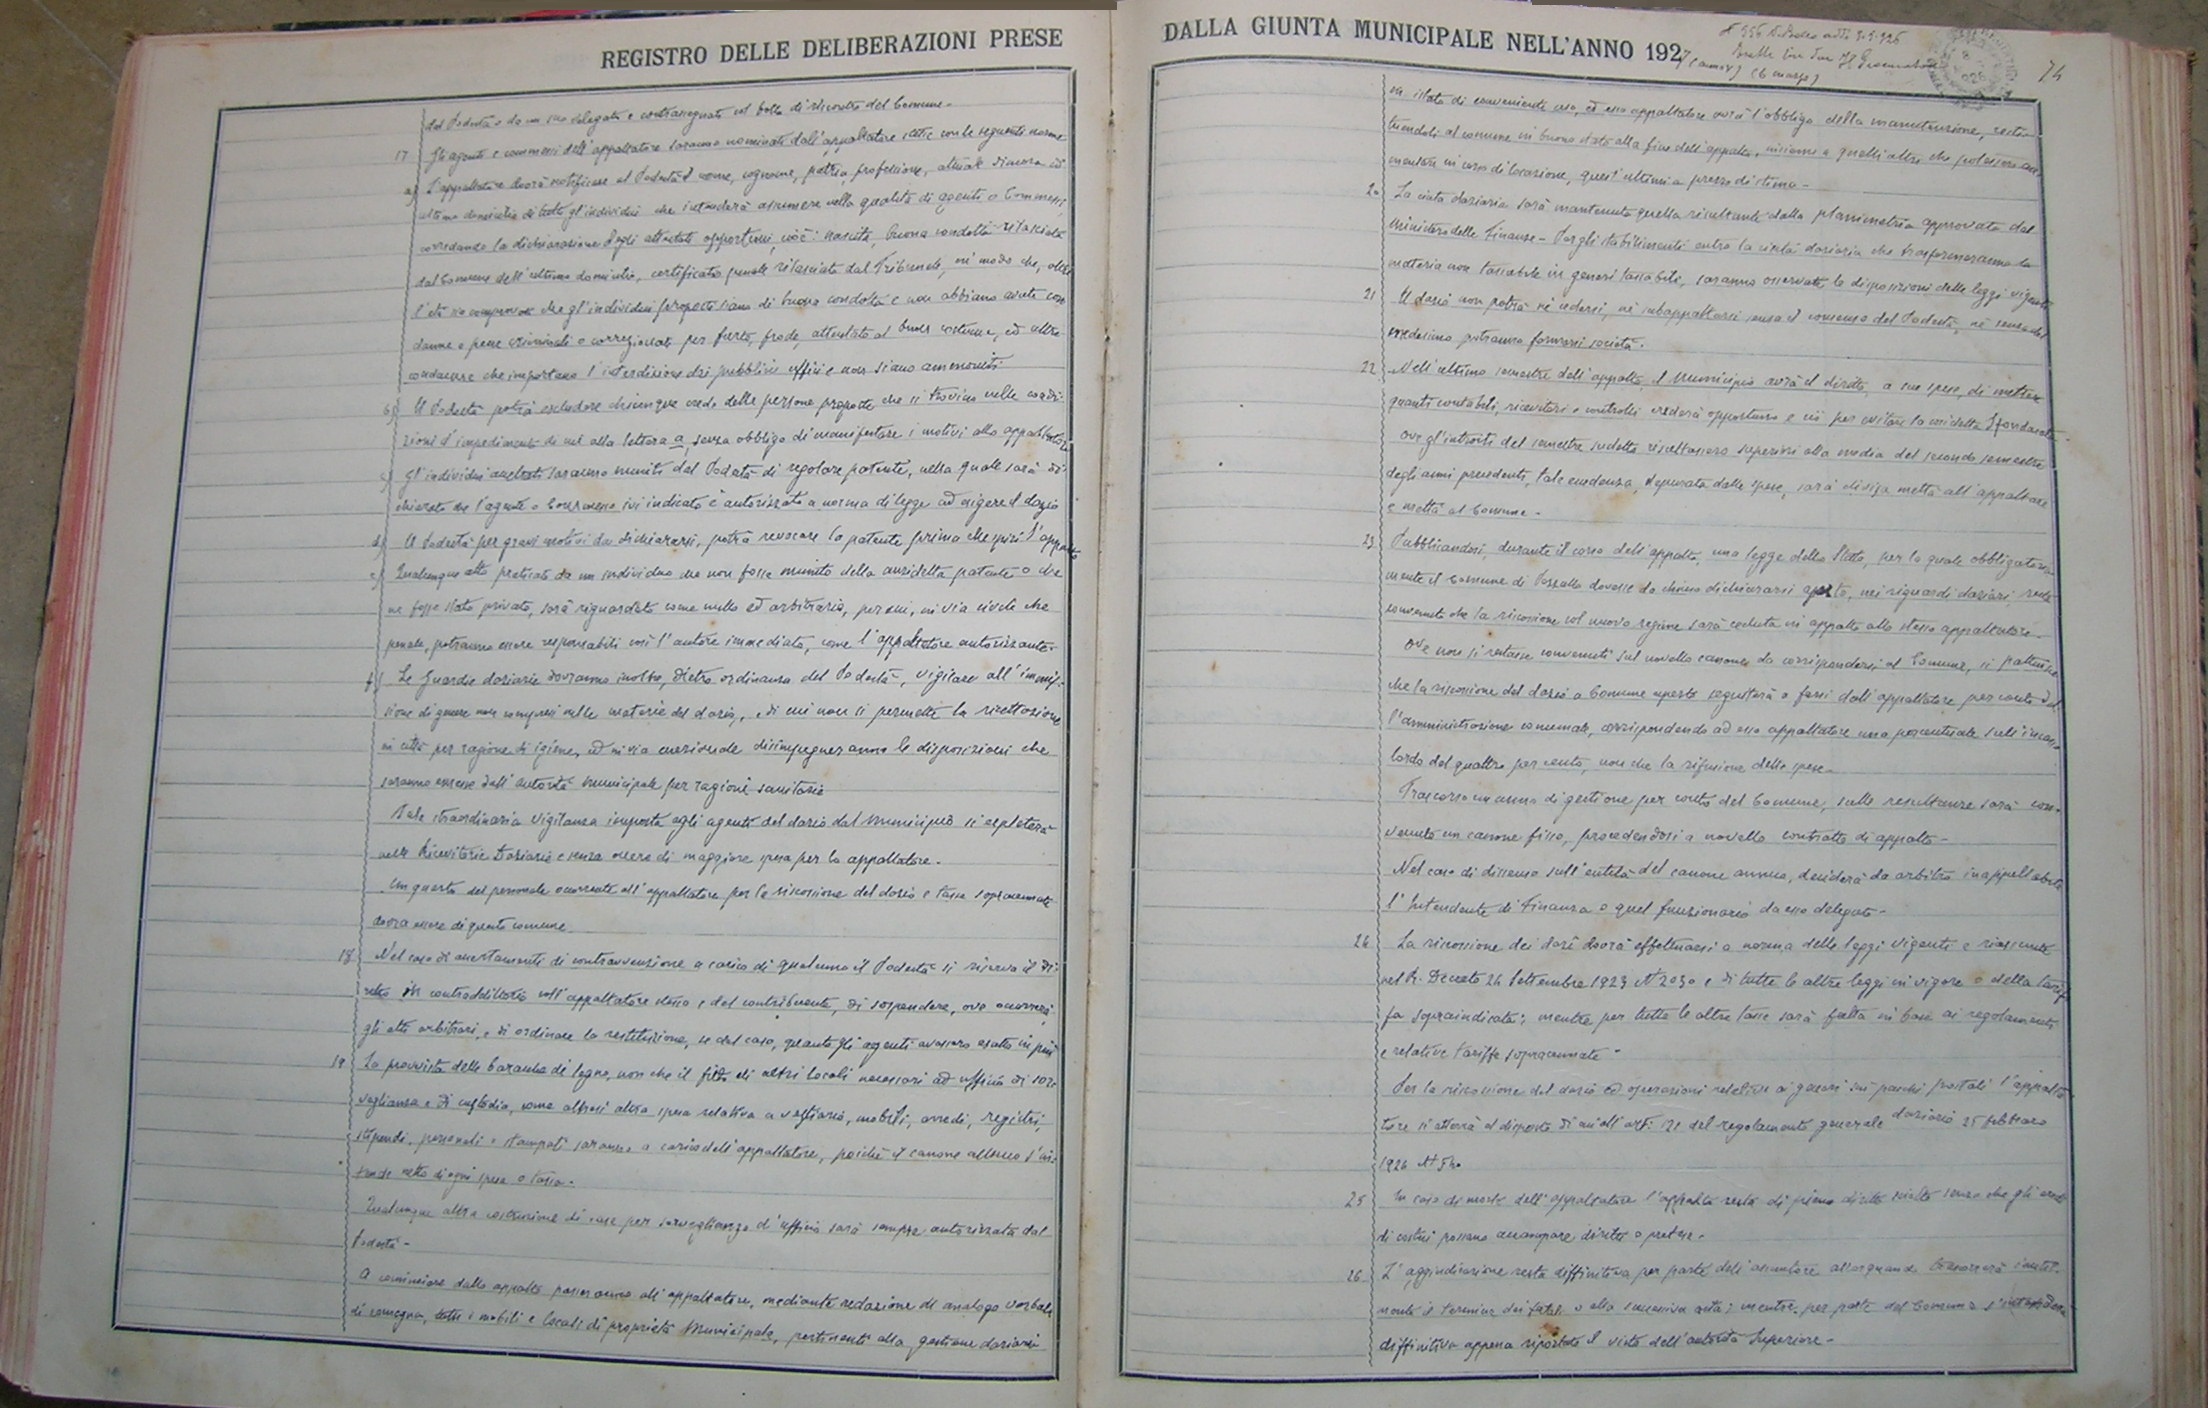 REGISTRO DELLE DELIBERAZIONI PRESE
del Podestà o da un suo delegato e contrassegnati col bollo di riscontro del Comune -
17 Gli agenti e commessi dell'appaltatore saranno nominati dall'appaltatore con le seguenti norme
a) L'appaltatore dovrà notificare al Podestà il nome, cognome, patria, professione, attuale dimora ed
ultimo domicilio di tutti gl'individui che intenderà assumere nella qualità di agenti o Commessi,
corredando la dichiarazione degli attestati opportuni, cioè: nascita, buona condotta rilasciata
dal Comune dell'ultimo domicilio, certificato penale rilasciato dal Tribunale, in modo che, oltre
l'età sia comprovato che gl'individui proposti siano di buona condotta e non abbiano avute con
danne a pene criminali o correzionali per furto, frode, attentato al buon costume, ed altre
condanne che importano l'interdizione dai pubblici uffici e non siano ammoniti
b) Il Podestà potrà escludere chiunque creda delle persone proposte che si trovino nelle condi-
zioni d'impedimento di cui alla lettera a, senza obbligo di manifestare i motivi allo appaltatore
c) Gl'individui accettati saranno muniti dal Podestà di regolare patente, nella quale sarà di-
chiarato che l'agente o Commesso ivi indicato è autorizzato a norma di legge ad esigere il dazio
d) Il Podestà per gravi motivi da dichiararsi, potrà revocare la patente prima che spiri l'appalto
e) Qualunque atto praticato da un individuo che non fosse munito della anzidetta patente o che
ne fosse stato privato, sarà riguardato come nullo ed arbitrario, per cui, in via civile che
penale, potranno essere responsabili così l'autore immediato, come l'appaltatore autorizzante.
f) Le Guardie daziarie dovranno inoltre, dietro ordinanza del Podestà, vigilare all'immis-
sione di genere non compresi nelle materie del dazio, di cui non si permette la ricettazione
in città per ragione di igiene, ed in via eccezionale disimpegneranno le disposizioni che
saranno emesse dall'autorità municipale per ragioni sanitarie
Tale straordinaria vigilanza imposta agli agenti del dazio dal Municipio si espleterà
nelle Ricevitorie Daziarie e senza onere di maggiore spesa per lo appaltatore.
Un quarto del personale occorrente all'appaltatore per la riscossione del dazio e tasse sopracennate
dovrà essere di questo comune
18 Nel caso di accertamenti di contravvenzione a carico di qualcuno il Podestà si riserva il di-
ritto in contraddittorio coll'appaltatore stesso e del contribuente, di sospendere, ove occorrerà,
gli atti arbitrari, e di ordinare la restituzione, se del caso, quanto gli agenti avessero esatto in più
19 La provvista delle baracche di legno, non che il fitto di altri locali necessari ad ufficio di sor-
veglianza e di custodia, come altresì altra spesa relativa a vestiario, mobili, arredi, registri,
stipendi, personali e stampati saranno a carico dell'appaltatore, poichè il canone s'in-
tende netto di ogni spesa o tassa.
Qualunque altra costruzione di case per sorveglianza d'ufficio sarà sempre autorizzata dal
Podestà -
A cominciare dallo appalto passeranno all'appaltatore, mediante redazione di analogo verbale
di consegna, tutti i mobili e locali di proprietà Municipale, pertinenti alla gestione daziaria
DALLA GIUNTA MUNICIPALE NELL'ANNO 1927
(6 marzo)
74
in istato di conveniente uso, ed esso appaltatore avrà l'obbligo della manutenzione, resti-
tuendoli al comune in buono stato alla fine dell'appalto, insieme a quelli altri che potessero au-
mentare in corso di locazione, quest'ultimi a prezzo di stima -
20 La cinta daziaria sarà mantenuta quella risultante dalla planimetria approvata dal
Ministero delle Finanze - Per gli stabilimenti entro la cinta daziaria che trasformeranno la
materia non tassabile in generi tassabili, saranno osservate le disposizioni delle leggi vigenti
21 Il dazio non potrà nè cedersi, nè subappaltarsi senza il consenso del Podestà, nè senza del
medesimo potranno formarsi società.
22 Nell'ultimo semestre dell'appalto, il Municipio avrà il diritto, a sue spese, di mettere
quanti contabili, ricevitori e controlli crederà opportuno e ciò per evitare la cosidetta Sfondacata
Ove gl'introiti del semestre sudetto risultassero superiori alla media del secondo semestre
degli anni precedenti, tale eccedenza, depurata dalle spese, sarà divisa metà all'appaltatore
e metà al Comune -
23 Pubblicandosi, durante il corso dell'appalto, una legge dello Stato, per la quale obbligatoria
mente il Comune di Pozzallo dovesse da chiuso dichiararsi aperto, nei riguardi daziari, resta
convenuto che la riscossione col nuovo regime sarà ceduta in appalto allo stesso appaltatore.
Ove non si restasse convenuti sul novello canone da corrispondersi al Comune, si pattuisce
che la riscossione del dazio a Comune aperto seguiterà a farsi dall'appaltatore per conto del
l'amministrazione comunale, corrispondendo ad esso appaltatore una percentuale sull'incasso
lordo del quattro per cento, non che la rifusione delle spese -
Trascorso un anno di gestione per conto del Comune, sulle resultanze sarà con-
venuto un canone fisso, procedendosi a novello contratto di appalto -
Nel caso di dissenso sull'entità del canone annuo, deciderà da arbitro inappellabile
l'Intendente di Finanza o quel funzionario da esso delegato -
24 La riscossione dei dazi dovrà effettuarsi a norma delle leggi vigenti e riassunte
nel R. Decreto 24 Settembre 1923 N 2030 e di tutte le altre leggi in vigore e della tarif-
fa sopraindicata; mentre per tutte le altre tasse sarà fatta in base ai regolamenti
e relative tariffe sopracennate -
Per la riscossione del dazio ed operazioni relative ai generi sui pacchi postali l'appalta-
tore si atterrà al disposto di cui all'art. del regolamento generale daziario 25 febbraio
1924 N° 540
25 In caso di morte dell'appaltatore l'appalto resta di pieno diritto sciolto senza che gli eredi
di costui possano accampare diritti o pretese.
26 L'aggiudicazione resta diffinitiva per parte dell'assuntore allorquando trascorrerà inutil-
mente il termine dei fatali o alla successiva asta; mentre per parte del Comune s'intenderà
diffinitiva appena riportato il visto dell'autorità Superiore -